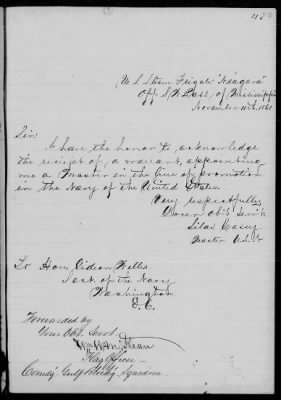 U S Steam Frigate "Niagara"
Off S. W. Pass, of Mississippi
November 11th, 1861
Sir:
I have the honor to acknowledge
the receipt of, a warrant, appointing
me a Master in the line of promotion
in the Navy of the United States.
Very respectfully
Your Obt. Servt.
Silas Casey
Master U.S.N.
To Hon. Gideon Welles
Sect. of the Navy
Washington
D.C.
Forwarded by
Your Obt. Servt.
Wm. W. McKean
Flag Officer
Comdg. Gulf Blockdg Squadron